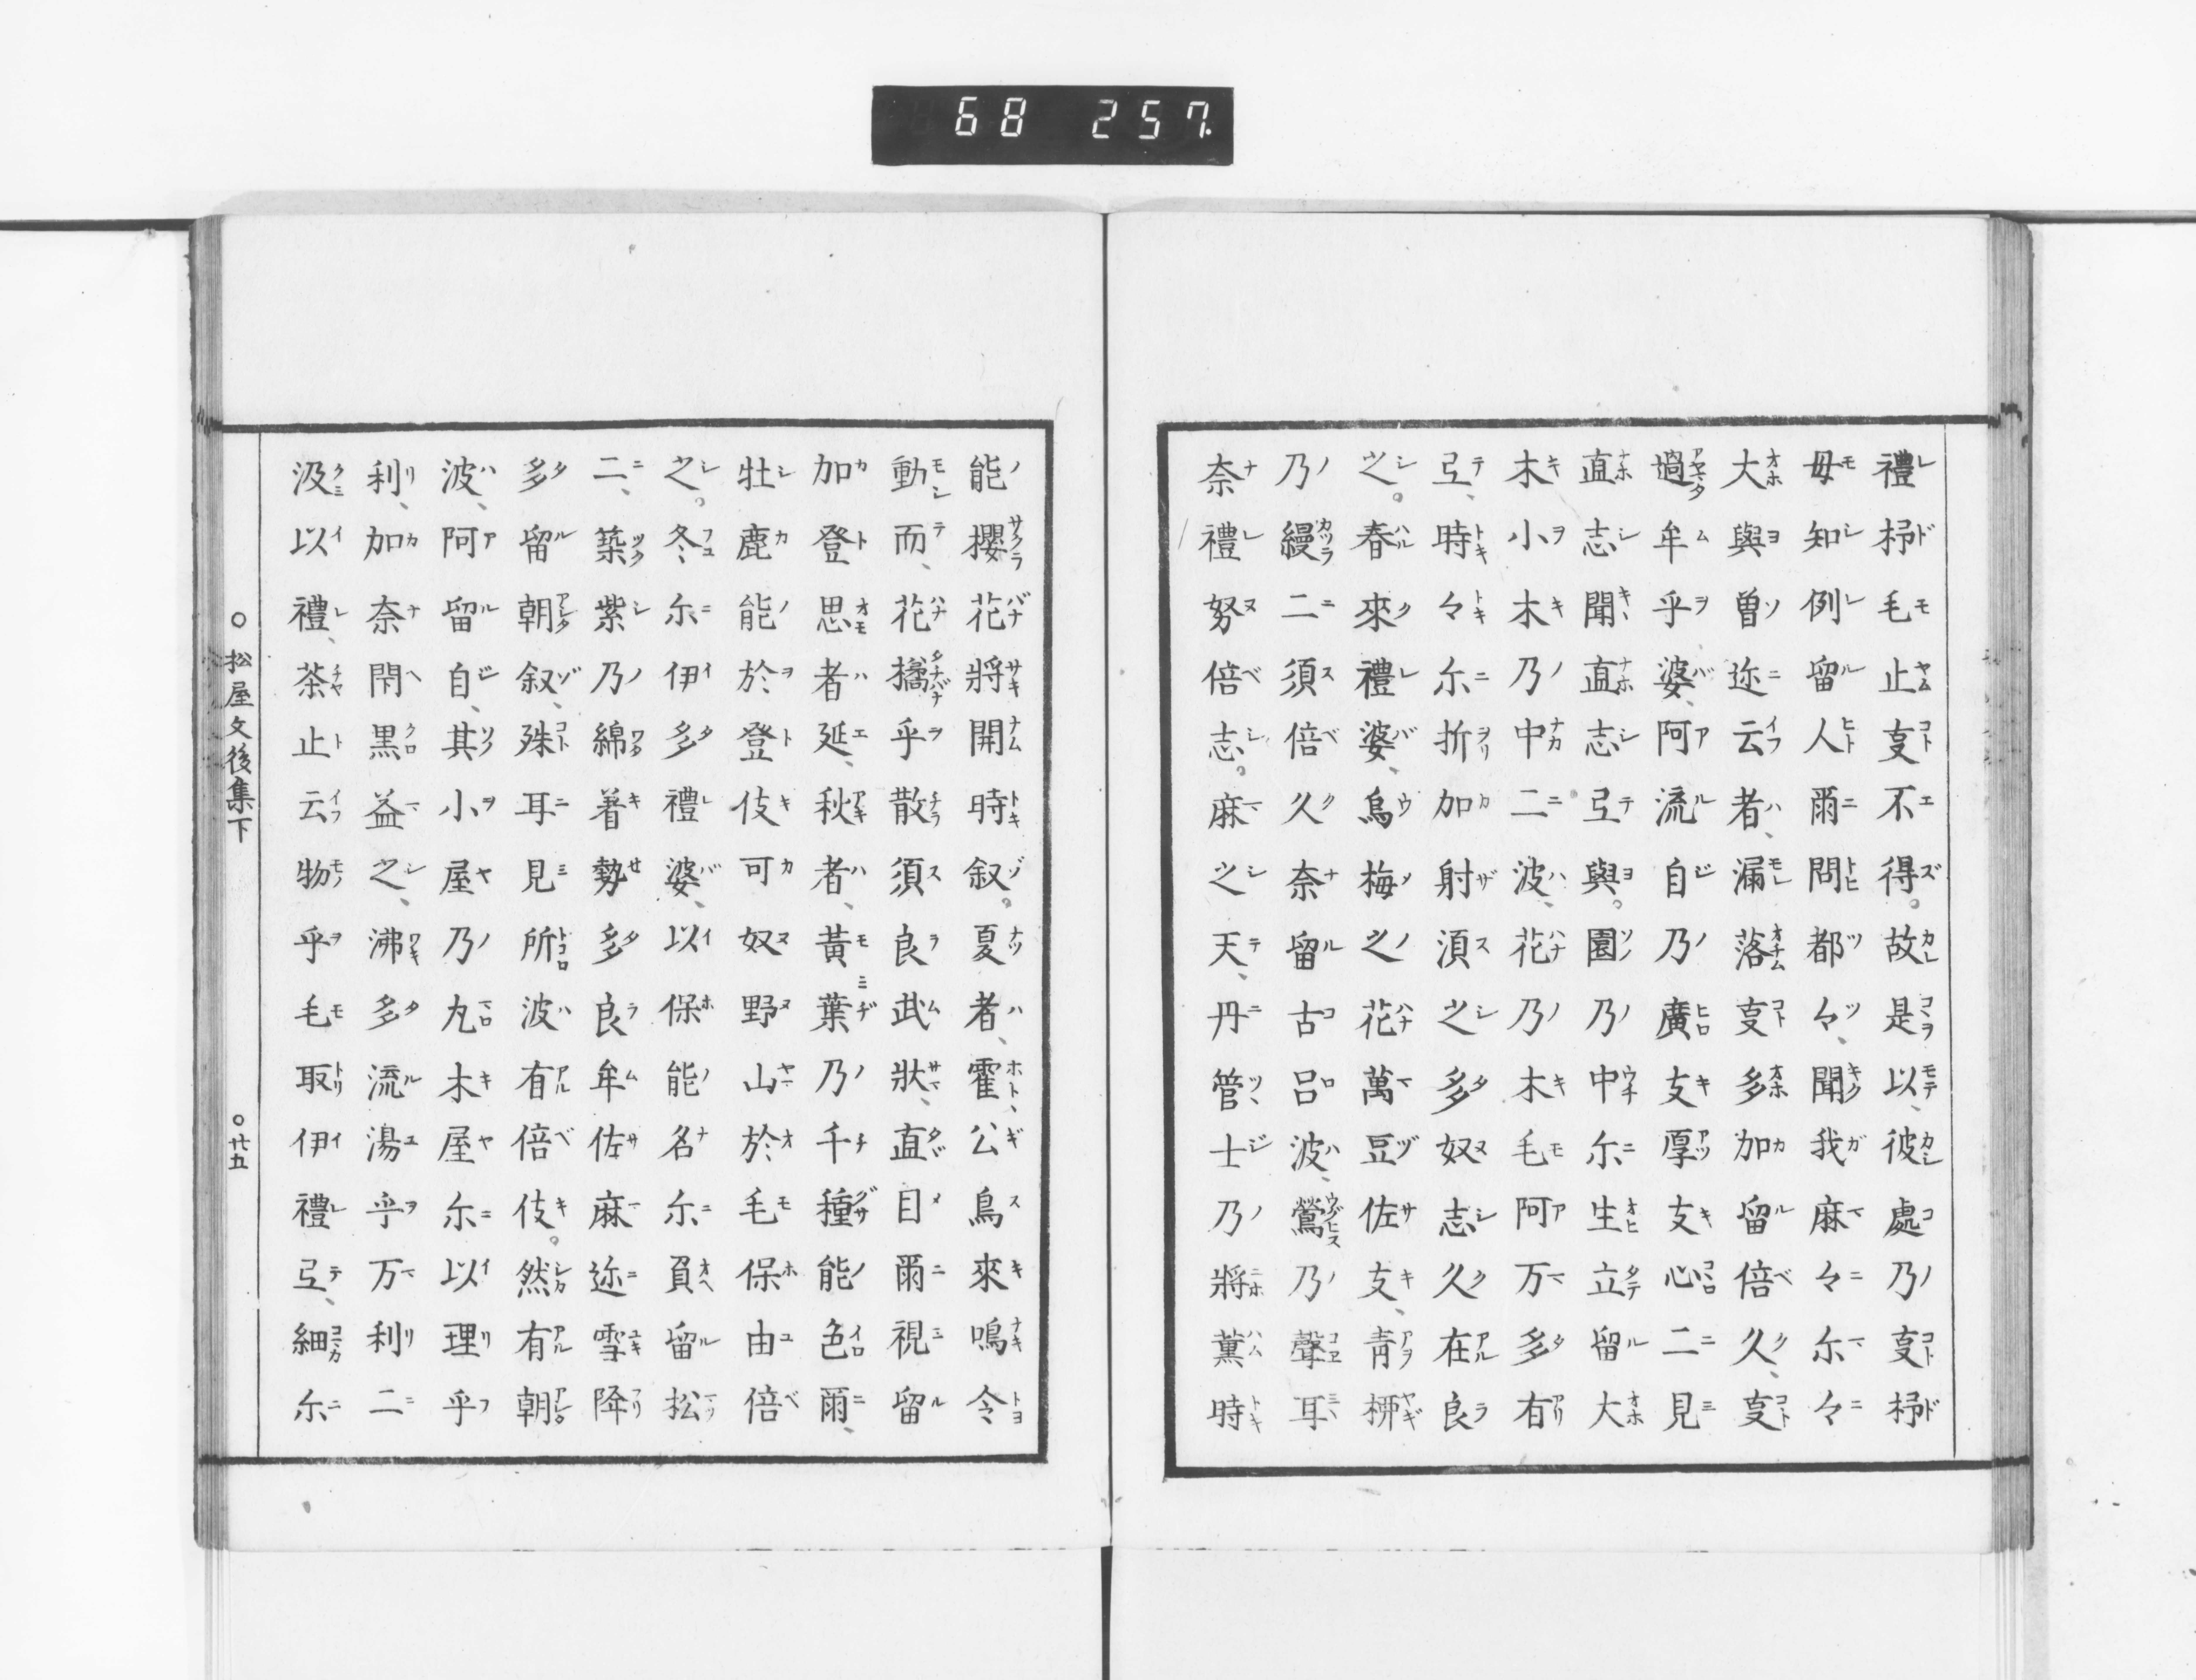 68 257
禮杼毛止叓不得。故是以、彼處乃叓杼
毋知例留人爾問都々、聞我麻々尓々
大與曽迩云者、漏落叓多加留倍久、叓
過牟乎婆、阿流自乃廣支厚支心二見
直志聞直志弖與。園乃中尓生立留大
木小木乃中二波、花乃木毛阿万多有
弖、時々尓折加射須之多奴志久在良
之。春來禮婆、烏梅之花萬豆佐支、青栁
乃縵二須倍久奈留古呂波、鶯乃聲耳
奈禮努倍志。麻之天、丹管士乃將薫時
能櫻花將開時叙。夏者、霍公鳥來鳴令
動而、花橘乎散須良武狀、直目爾視留
加登思者延、秋者、黃葉乃千種能色爾、
牡鹿能於登伎可奴野山於毛保由倍
之。冬尓伊多禮婆、以保能名尓負留松
二、築紫乃綿着勢多良牟佐麻迩雪降
多留朝叙、殊耳見所波有倍伎。然有朝
波、阿留自、其小屋乃丸木屋尓以理乎
利、加奈閇黒益之、沸多流湯乎万利二
汲以禮、茶止云物乎毛取伊禮弖、細尓
○松屋文後集下 ○廿五